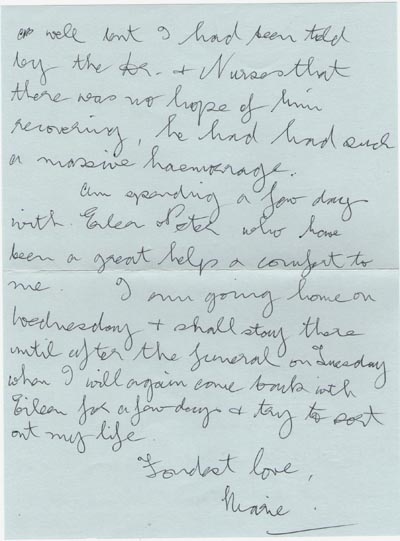 as well but I had been told
by the Dr. + Nurses that
there was no hope of him
recovering, he had had such
a massive haemorrage.
Am spending a few days
with Eileen + Peter who have
been a great help & comfort to
me. I am going home on
Wednesday + shall stay there
until after the funeral on Tuesday
when I will again come back with
Eileen for a few days & try to sort
out my life.
Fondest love,
Marie.